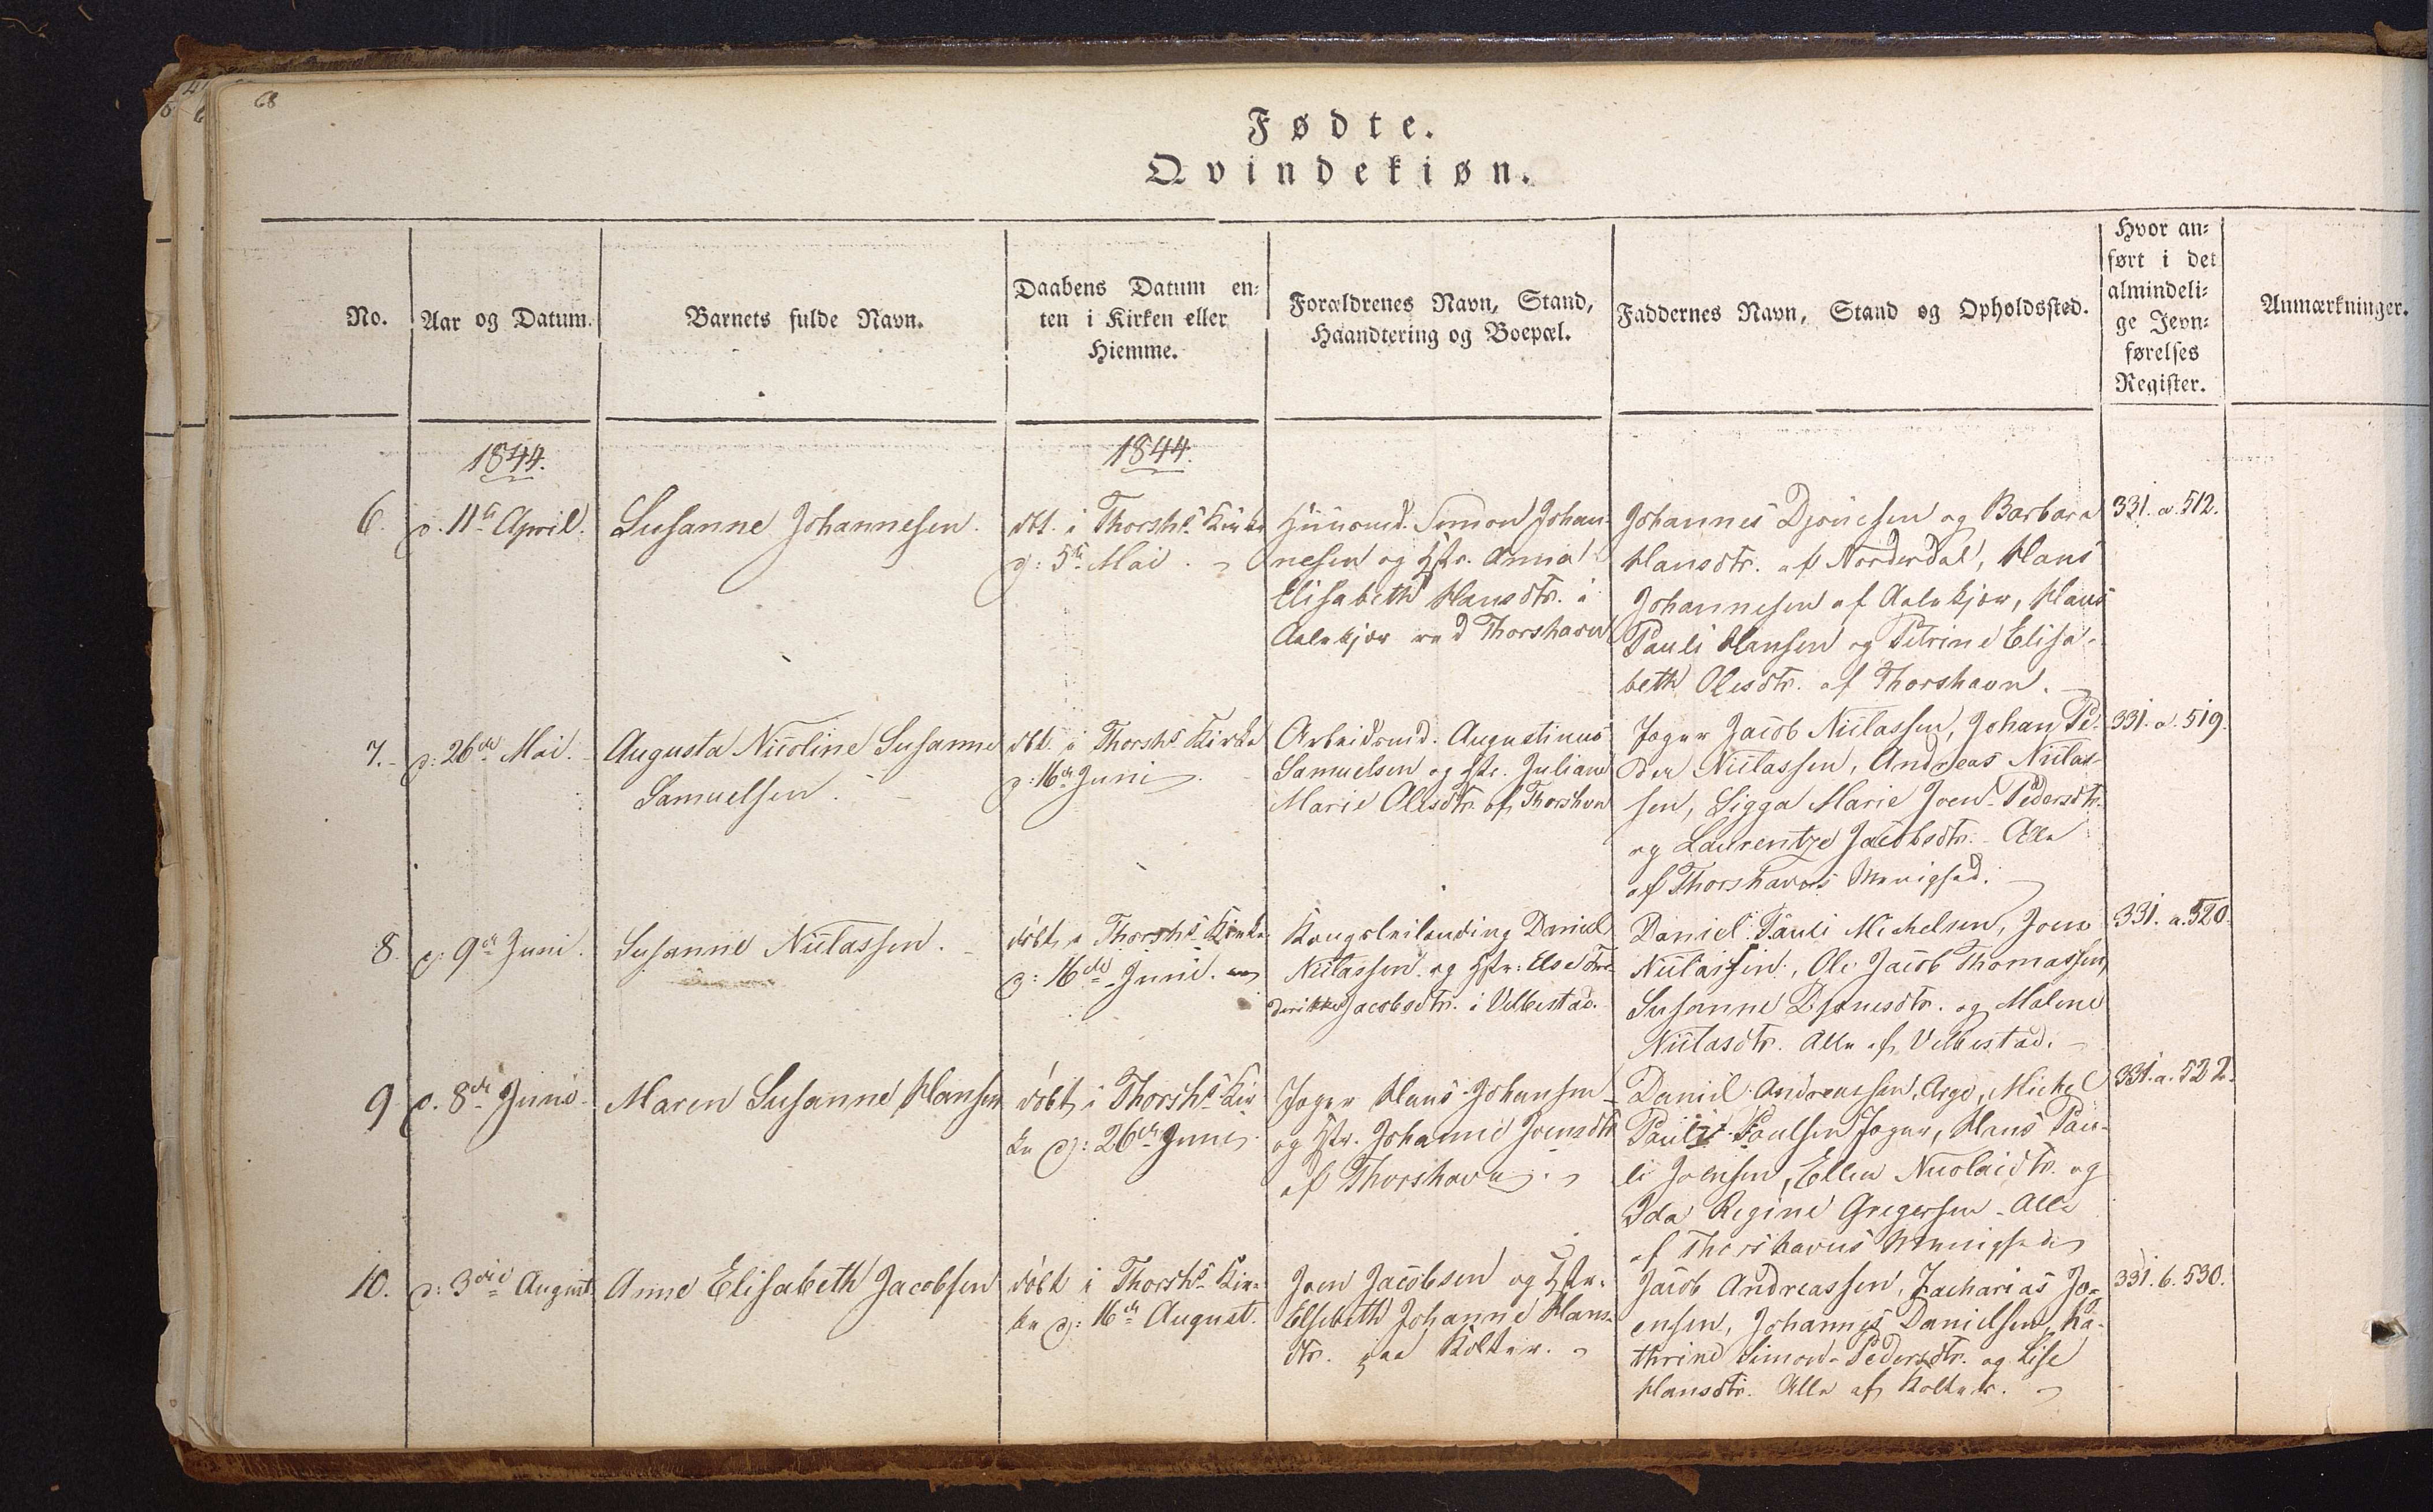 68
Fødte.
Qvindekiøn.
No.
Aar og Datum.
Barnets fulde Navn.
Daabens Datum en=
ten i Kirken eller
Hiemme.
Forældrenes Navn, Stand,
Haandtering og Boepæl.
Faddernes Navn, Stand og Opholdssted.
Hvor an=
ført i det
almindeli=
ge Jevn=
førelses
Register.
Anmærkninger.
1844.
1844.
6.
d. 11te April.
Susanne Johannesen.
dbt. i Thorshs Kirke
d: 5te Mai.
Huusmd. Simon Johan-
nesen og Hstr. Anna
Elisabeth Hansdtr. i
Aalekjær ved Thorshavn
Johannes Djonesen og Barbara
Hansdtr. af Norderdal, Hans
Johannesen af Aalekjær, Hans
Pauli Hansen og Petrine Elisa-
beth Olesdtr. af Thorshavn.
331. a. 512.
7.
d: 26de Mai.
Augusta Nicoline Susanne
Samuelsen.
dbt. i Thorshs Kirke
d: 16de Juni
Arbeidsmd. Augustinus
Samuelsen og Hstr. Juliane
Marie Olesdtr. af Thorshvn
Jæger Jacob Niclassen, Johan Pe-
der Niclassen, Andreas Niclas-
sen, Sigga Marie Joen-Pedersdtr.
og Laurentze Jacobsdtr. Alle
af Thorshavns Menighed.
331. a. 519.
8.
d: 9de Juni.
Susanne Niclassen.
døbt i Thorshs Kirke
d: 16de Juni.
Kongsleilending Daniel
Niclassen og Hstr: Else Fre-
derikke Jacobsdtr. i Velbestad.
Daniel Pauli Michelsen, Joen
Niclassen, Ole Jacob Thomassen,
Susanne Djonesdtr. og Malene
Niclasdtr. Alle af Velbestad.
331. a. 520.
9
d. 8de Juni
Maren Susanne Hansen
døbt i Thorshs Kir-
ke d: 26de Juni
Jæger Hans Johansen
og Hstr. Johanne Joensdtr
af Thorshavn.
Daniel Andreassen, Arge, Michel
Pauli Poulsen Jæger, Hans Pau-
li Joensen, Ellen Nicolaidtr. og
Ida Regine Gregersen. Alle
af Thorshavns Menighed
331. a. 522.
10.
d: 3die August
Anne Elisabeth Jacobsen
døbt i Thorshs Kir-
ke d: 16de August.
Joen Jacobsen og Hstr.
Elsebeth Johanne Hans-
dtr. paa Kolter.
Jacob Andreassen, Zacharias Jo-
ensen, Johannes Danielsen, Ka-
thrine Simon-Pedersdtr. og Lise
Hansdtr. Alle af Kolter.
331. b. 530.